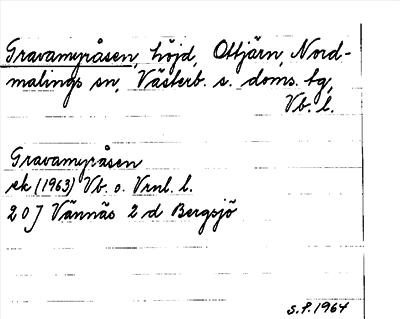 Gravamyråsen, höjd, Ottjärn, Nord-
malings sn, Västerb. s. doms. tg,
Vb. l.
Gravamyråsen
ek (1963) Vb. o. Vrml. l.
20 J Vännäs 2 d Bergsjö
s.f. 1964